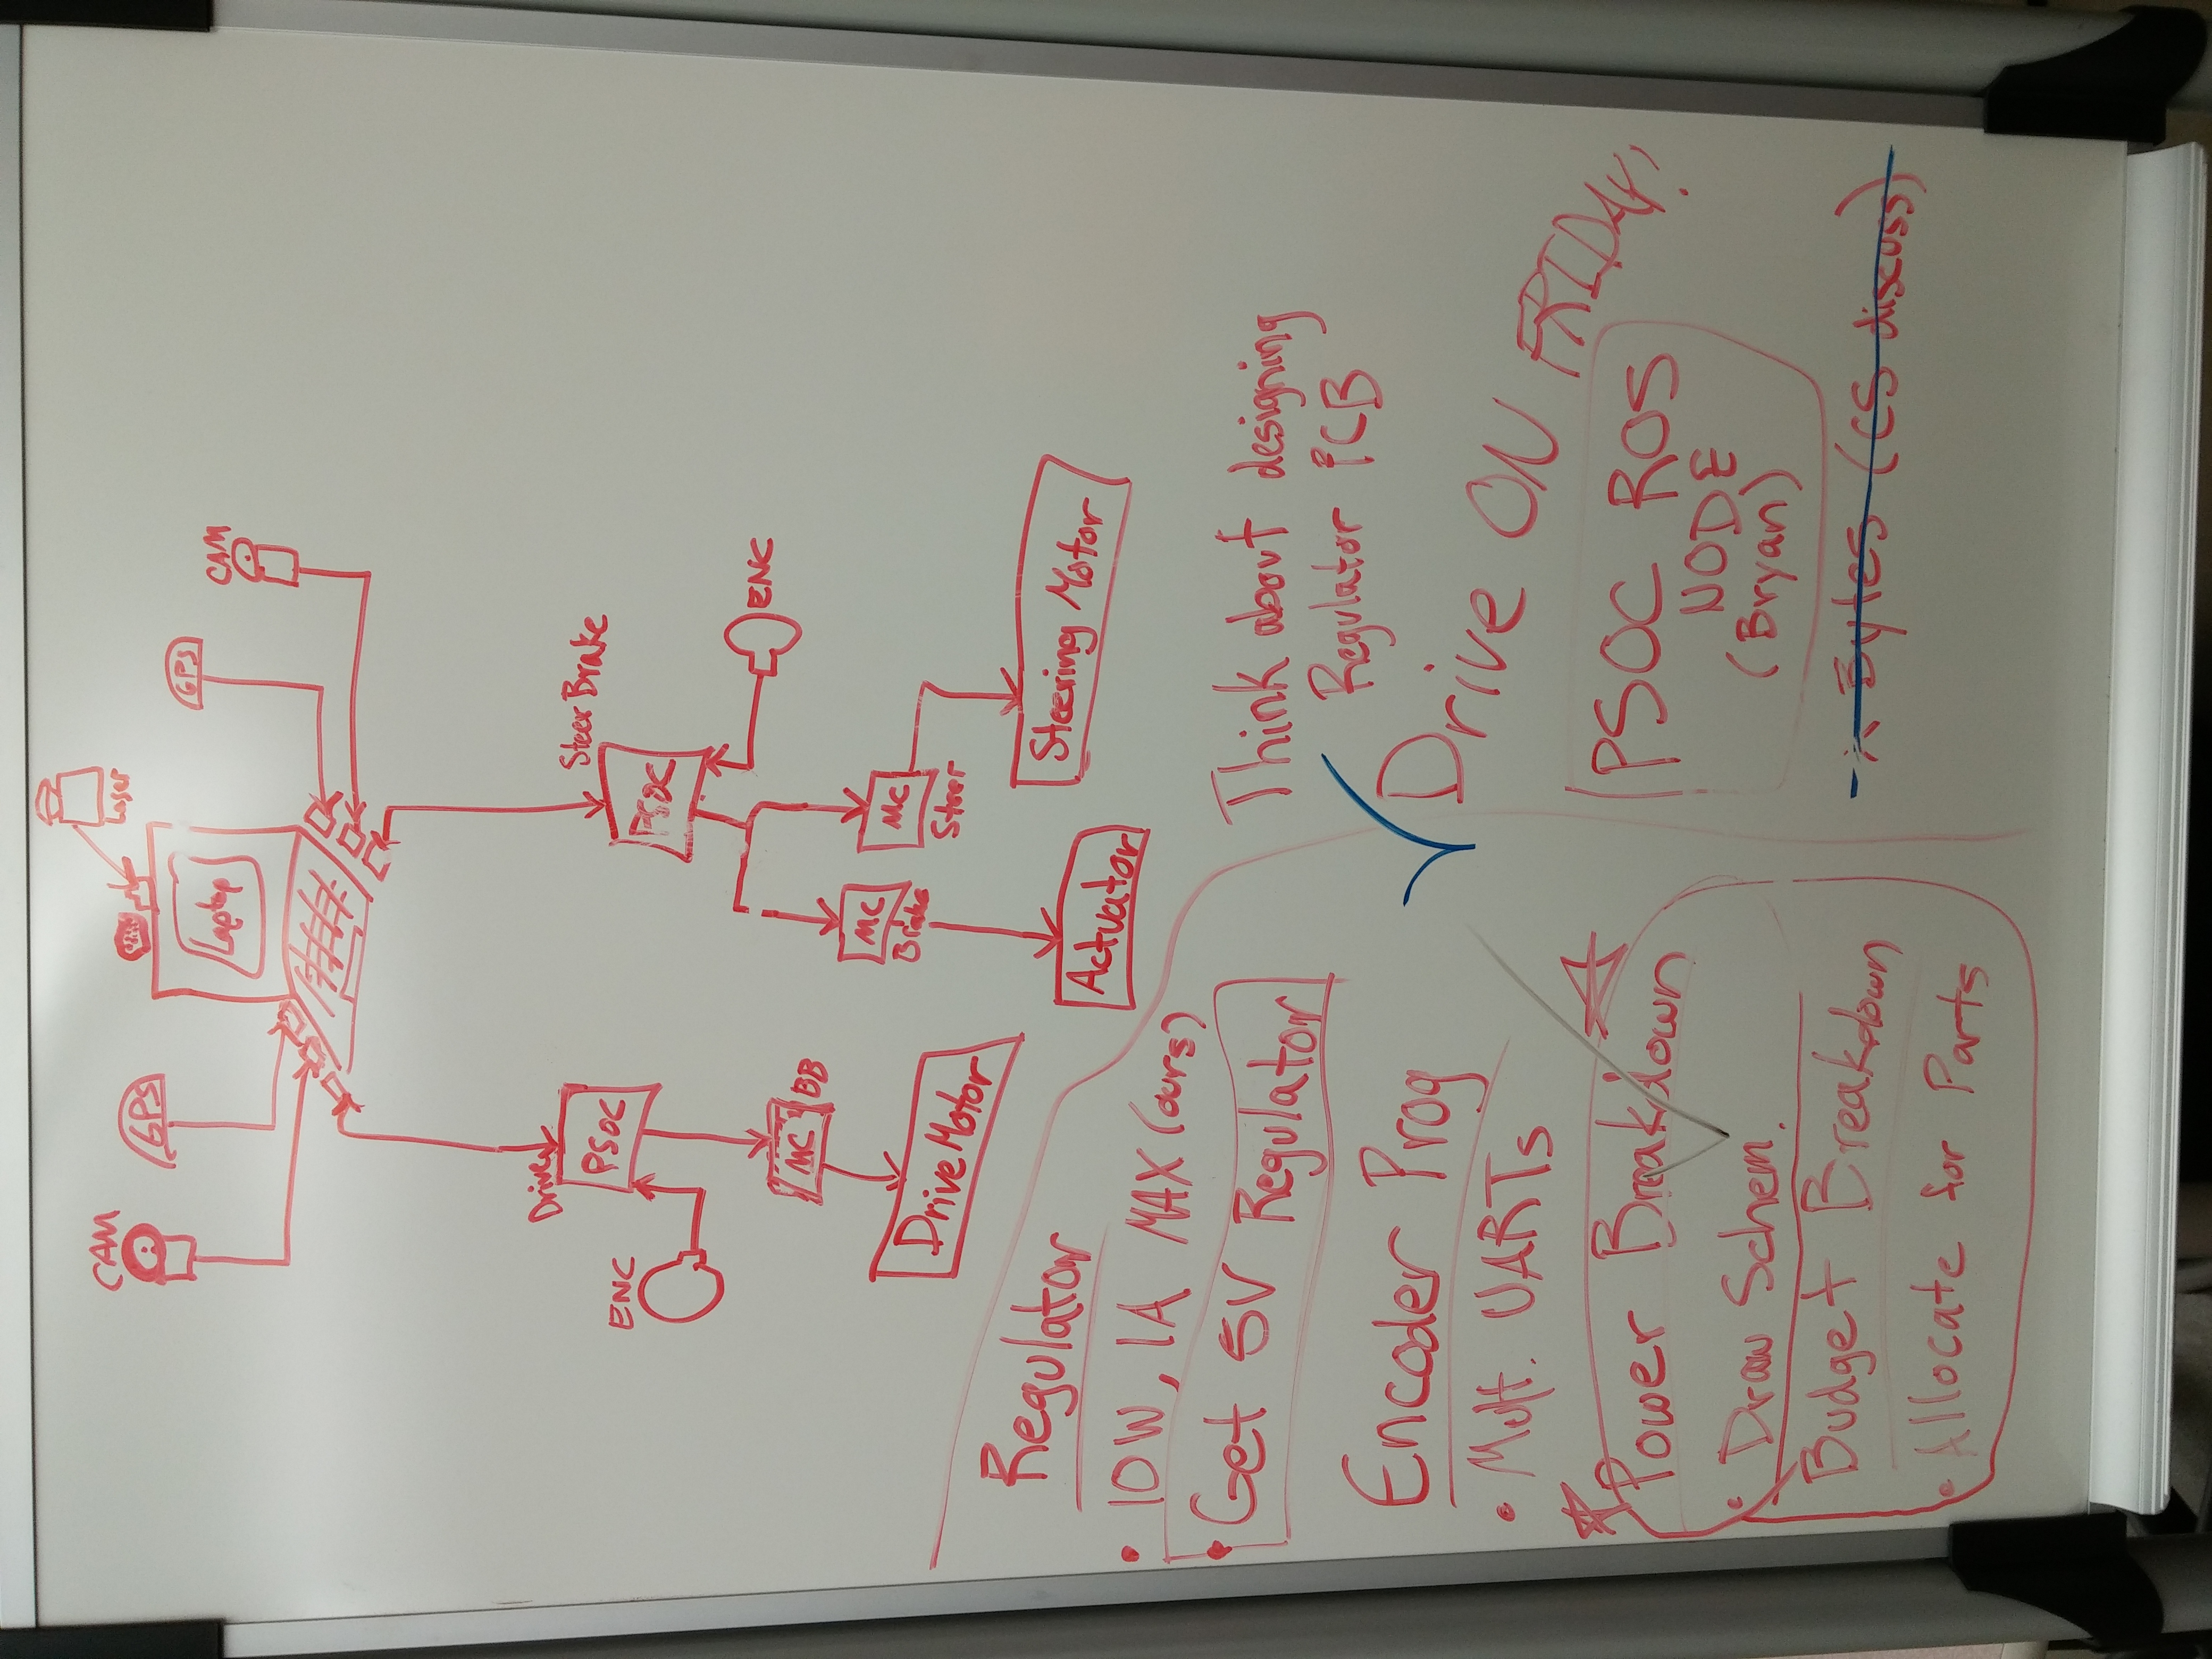 CAM
GPS
Laser
Laptop
GPS
CAM
Drive
PSOC
ENC
MC BB
Drive Motor
Steer Brake
PSOC
ENC
MC
Brake
MC
Steer
Actuator
Steering Motor
Regulator
• 10W, 1A MAX (ours)
• Get 5V Regulator
Encoder Prog
• Mult. UARTs
Power Breakdown
• Draw Schem.
Budget Breakdown
• Allocate for Parts
Think about designing
Regulator PCB
Drive ON FRIDAY!
PSOC ROS
NODE
(Bryan)
Bytes (CS discuss)